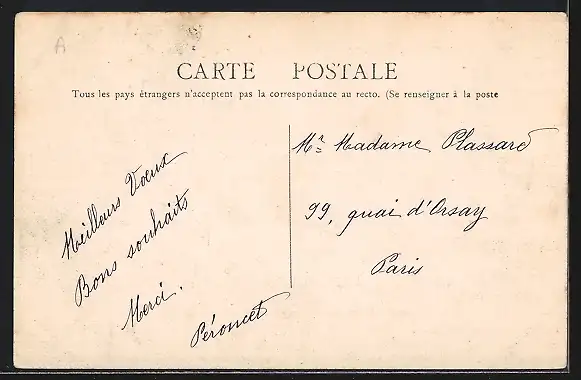 A
CARTE POSTALE
Tous les pays étrangers n'acceptent pas la correspondance au recto. (Se renseigner à la poste
Meilleurs Voeux
Bons souhaits
Merci.
Péroncet
Mr Madame Plassard
99, quai d'Orsay
Paris